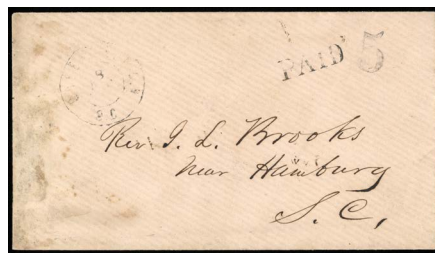 PAID 5
Rev I. L. Brooks
near Hamburg
S. C,